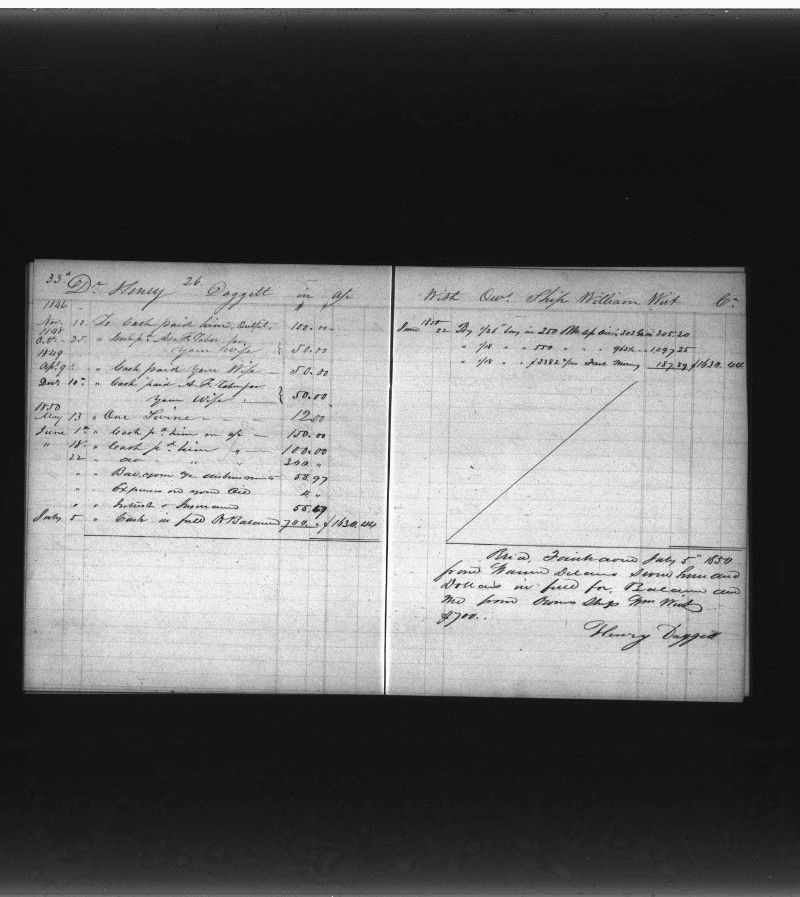 33 26
Dr Henry Daggett in a/c
1846
Nov. 10 To Cash paid him, Outfit, 100.00
1848
Oct. 25 "
your Wife 50.00
1849
Apl. 9 " Cash paid your Wife 50.00
Decr 10 " Cash paid A. F.
your Wife 50.00
1850
May 13 " One Swine 12.00
June 1st " Cash pd him on a/c 150.00
" 18 " Cash pd him " 100.00
22 " do " " 300 "
" " Bal. your disbursements 58.97
" " Expenses on your Oil 4 "
" " Interest & Insurance 55.47
July 5 " Cash in full Balance 700. " $1630.44
With Ows. Ship William Wirt Cr
1850
June 22 By 1/26 lay in 250 Bbls Sp 305.20
" 1/18 " " 550 " " 1197 25
" 1/18 " $3382 Money 187.99 $1630.44
Recd. Fairhaven July 5th 1850
from Warren Delano Seven hundred
Dollars in full for Balance due
me from Owners Ship Wm Wirt
$700..
Henry Daggett